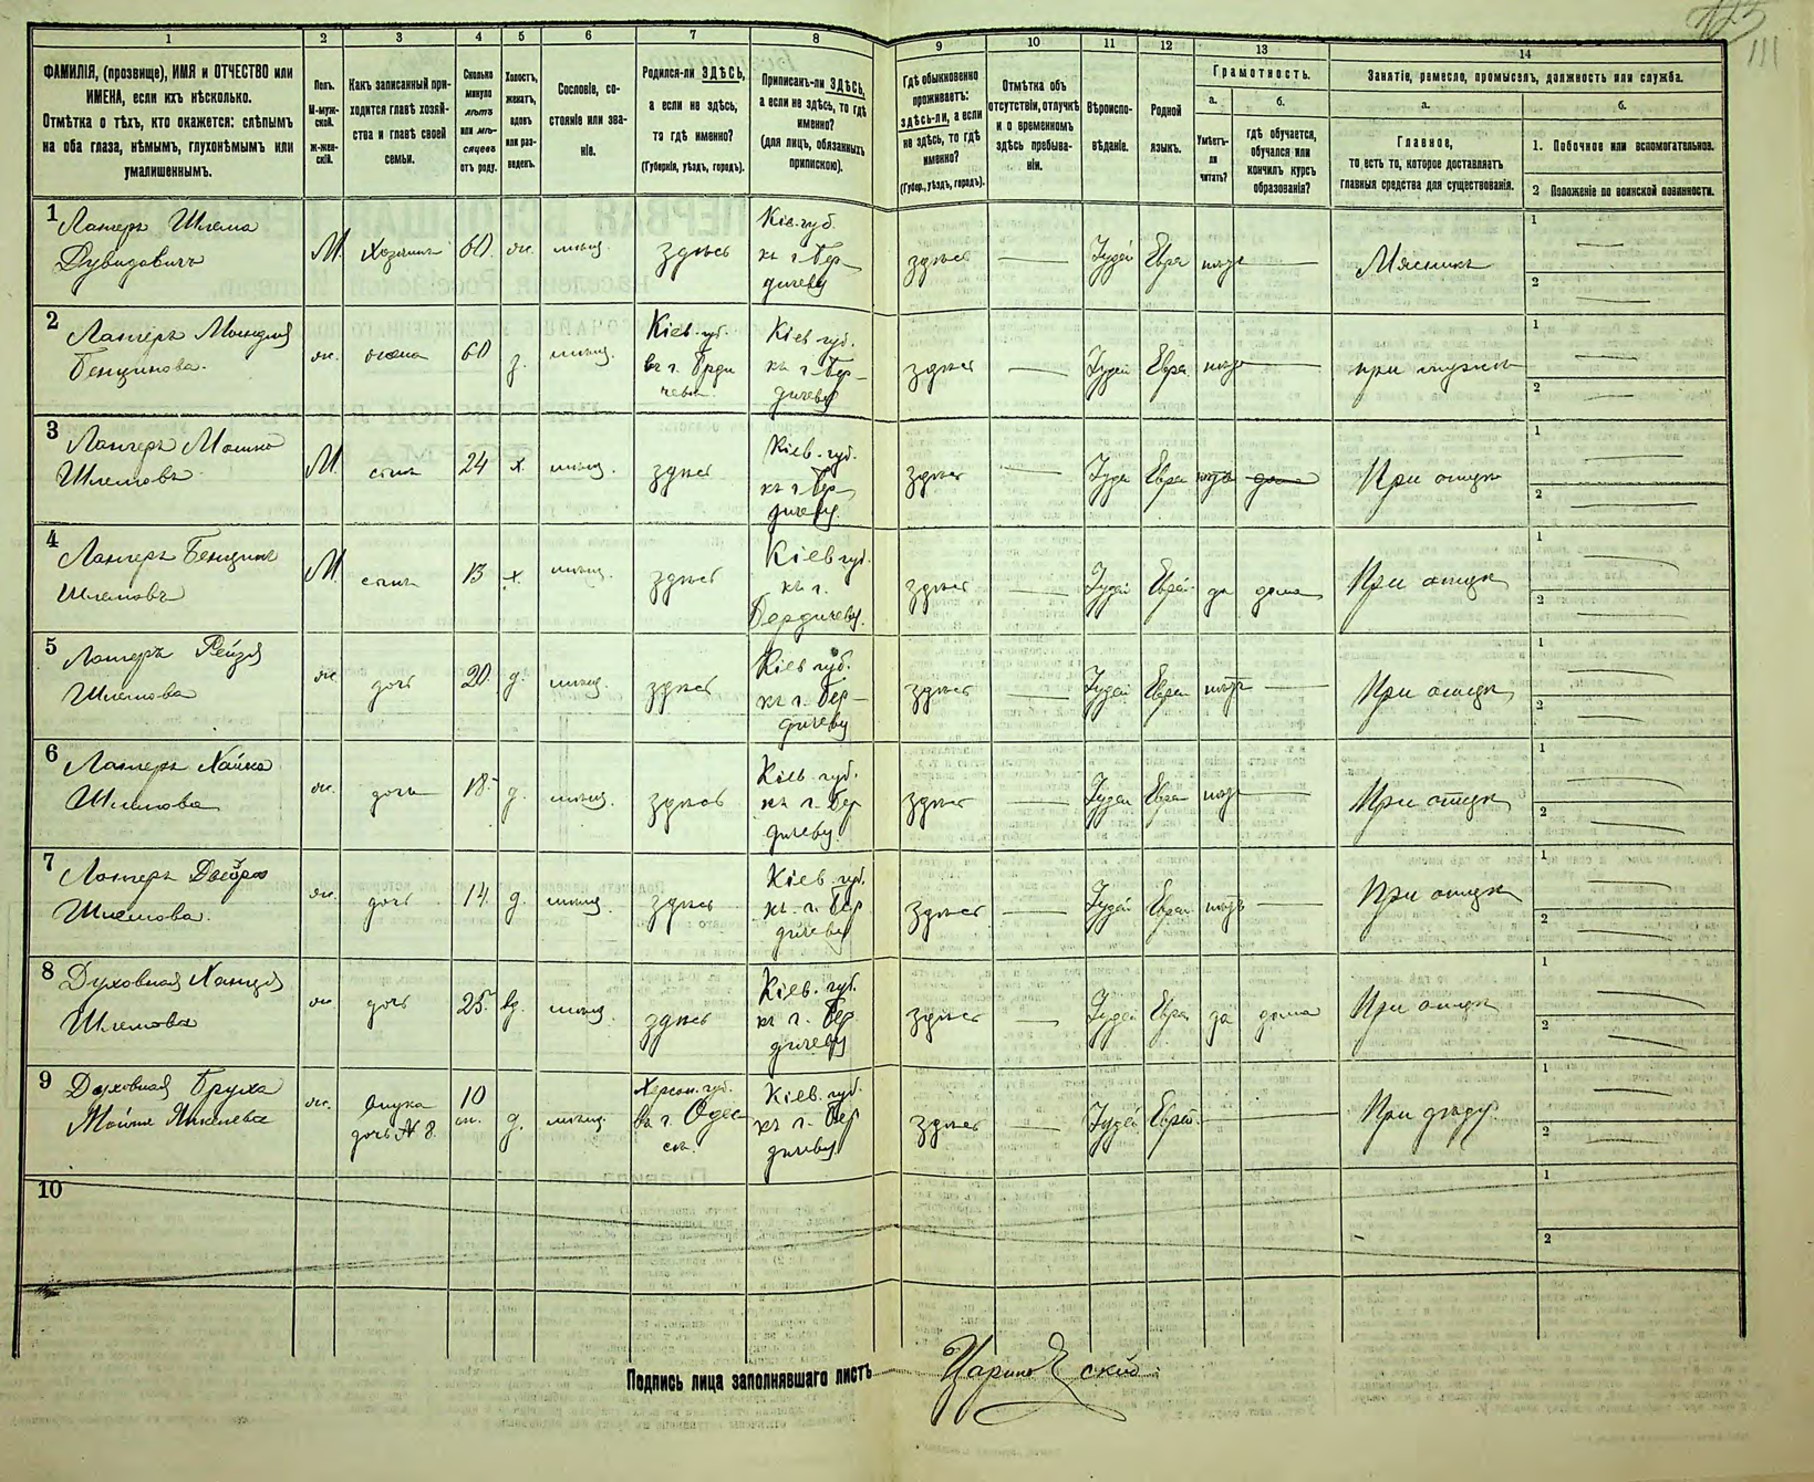 1 2 3 4 5 6 7 8 9 10 11 12 13 14
ФАМИЛІЯ, (прозвище), ИМЯ и ОТЧЕСТВО или
ИМЕНА, если ихъ нѣсколько.
Отмѣтка о тѣхъ, кто окажется: слѣпымъ
на оба глаза, нѣмымъ, глухонѣмымъ или
умалишеннымъ.
Полъ.
М-муж-
ской.
Ж-жен-
скій.
Какъ записанный при-
ходится главѣ хозяй-
ства и главѣ своей
семьи.
Сколько
минуло
лѣтъ
или мѣ-
сяцевъ
отъ роду.
Холостъ,
женатъ,
вдовъ
или раз-
веденъ.
Сословіе, со-
стояніе или зва-
ніе.
Родился-ли ЗДѢСЬ,
а если не здѣсь,
то гдѣ именно?
(Губернія, уѣздъ, городъ).
Приписанъ-ли ЗДѢСЬ,
а если не здѣсь, то гдѣ
именно?
(для лицъ, обязанныхъ
припискою).
Гдѣ обыкновенно
проживаетъ:
здѣсь-ли, а если
не здѣсь, то гдѣ
именно?
(Губер., уѣздъ, городъ).
Отмѣтка объ
отсутствіи, отлучкѣ
и о временномъ
здѣсь пребыва-
ніи.
Вѣроиспо-
вѣданіе.
Родной
языкъ.
Грамотность.
а.
Умѣетъ-
ли
читать?
б.
гдѣ обучается,
обучался или
кончилъ курсъ
образованія?
Занятіе, ремесло, промыселъ, должность или служба.
а.
Главное,
то есть то, которое доставляетъ
главныя средства для существованія.
б.
1. Побочное или вспомогательное.
2 Положеніе по воинской повинности.
1 Ланеръ Шлема
Дувидовичъ
М. Хозяинъ 60. ж. мѣщ. здѣсь
Кіев. губ.
къ г. Бер-
дичеву
здѣсь — Іудей Евре нѣтъ — Мясникъ
1 —
2 —
2 Ланеръ
Бенционова.
ж. жена 60 з. мѣщ.
Кіев. губ.
въ г. Берди
чевѣ.
Кіев. губ.
къ г. Бер-
дичеву
здѣсь — Іудей Евре нѣтъ — при мужѣ
1 —
2 —
3 Ланеръ Мошко
Шлемовъ
М. сынъ 24 х. мѣщ. здѣсь
Кіев. губ.
къ г. Бер-
дичеву.
здѣсь — Іуде Евре нѣтъ дома При отцѣ
1 —
2 —
4 Ланеръ Бенционъ
Шлемовъ
М. сынъ 13 х. мѣщ. здѣсь
Кіев губ.
къ г.
Бердичеву.
здѣсь — Іудей Еврей да дома При отцѣ
1 —
2 —
5 Ланеръ Рейзя
Шлемова
ж. дочь 20. д. мѣщ. здѣсь
Кіев губ.
къ г. Бер-
дичеву
здѣсь — Іудей Евре нѣтъ — При отцѣ
1 —
2 —
6 Ланеръ Хайка
Шлемова
ж. дочь 18. д. мѣщ. здѣсь
Кіев. губ.
къ г. Бер
дичеву
здѣсь — Іудеи Евре нѣтъ — При отцѣ
1 —
2 —
7 Ланеръ Двойра
Шлемова.
ж. дочь 14. д. мѣщ. здѣсь
Кіев. губ.
къ г. Бер
дичеву
здѣсь — Іудей Евреи нѣтъ — При отцѣ
1 —
2 —
8 Духовная Ханця
Шлемова
ж дочь 25. вд. мѣщ. здѣсь
Кіев. губ.
къ г. Бер.
дичеву
здѣсь — Іудей Евре да дома При отцѣ
1 —
2 —
9 Духовная Бруха
ж. внука
дочь № 8.
10
д. мѣщ.
Херсон. губ.
въ г. Одес
сѣ.
Кіев. губ.
къ г. Бер
дичеву
здѣсь — Іудей Еврей. — При дѣду.
1 —
2 —
10
1
2
Подпись лица заполнявшаго листъ